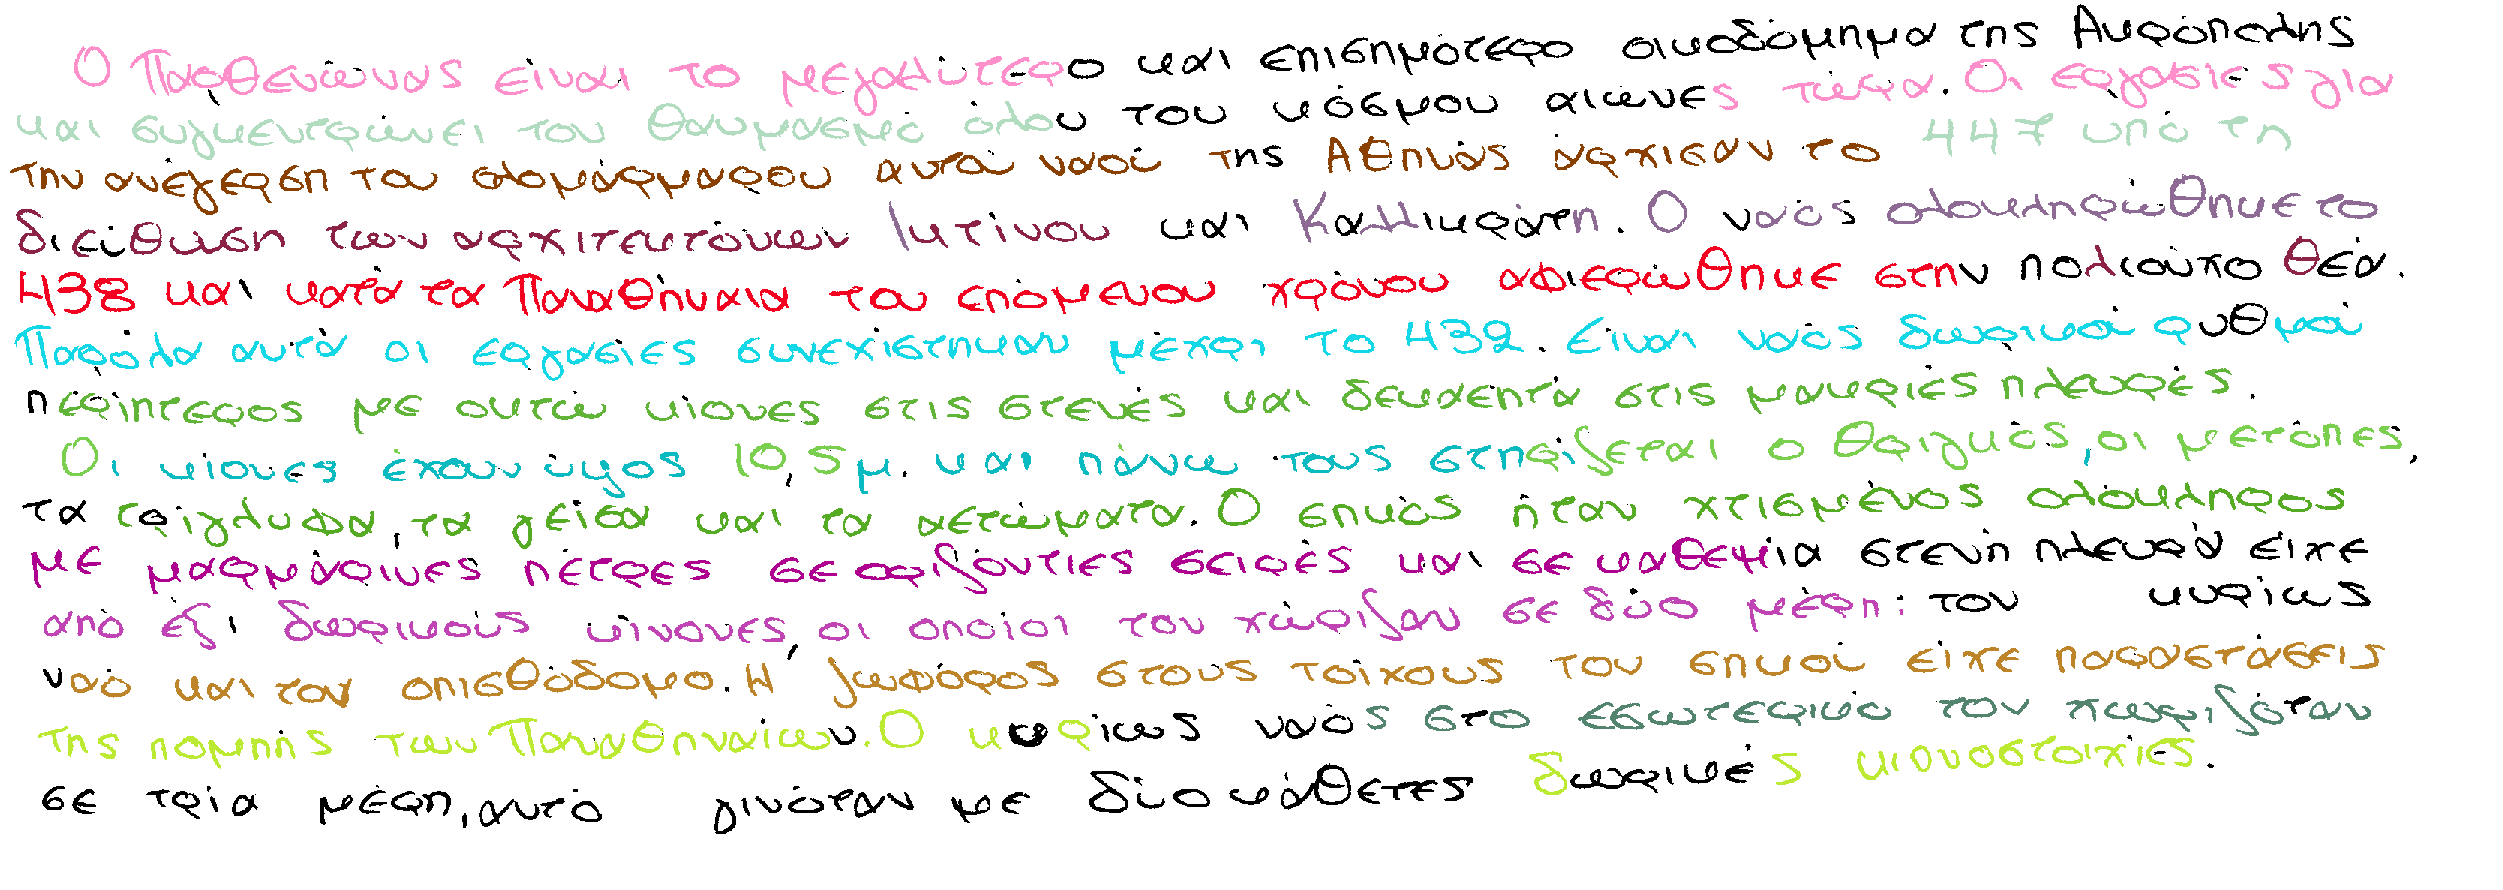 Ο Παρθενώνας είναι το μεγαλύτερο και επισημότερο οικοδόμημα της Ακρόπολης
και συγκεντρώνει τον θαυμασμό όλου του κόσμου αιώνες τώρα. Οι εργασίες για
την ανέγερση του ολομάρμαρου αυτού ναού της Αθηνάς άρχισαν το 447 υπό τη
διεύθυνση των αρχιτεκτόνων Ικτίνου και Καλλικράτη. Ο ναός ολοκληρώθηκε το
438 και κατά τα Παναθήναια του επόμενου χρόνου αφιερώθηκε στην πολιούχο θεά.
Παρόλα αυτά οι εργασίες συνεχίστηκαν μέχρι το 432. Είναι ναός δωρικού ρυθμού
περίπτερος με οκτώ κίονες στις στενές και δεκαεπτά στις μακριές πλευρές.
Οι κίονες έχουν ύψος 10,5μ. και πάνω τους στηρίζεται ο θριγκός, οι μετόπες,
τα τρίγλυφα, τα γείσα και τα αετώματα. Ο σηκός ήταν χτισμένος ολόκληρος
με μαρμάρινες πέτρες σε οριζόντιες σειρές και σε καθεμία στενή πλευρά είχε
από έξι δωρικούς κίνονες, οι οποίοι τον χώριζαν σε δύο μέρη: τον κυρίως
ναό και τον οπισθόδομο. Η ζωφόρος στους τοίχους του σηκού είχε παραστάσεις
της πομπής των Παναθηναίων. Ο κυρίως ναός στο εσωτερικό του χωριζόταν
σε τρία μέρη, αυτό γινόταν με δύο κάθετες δωρικές κιονοστοιχίες.